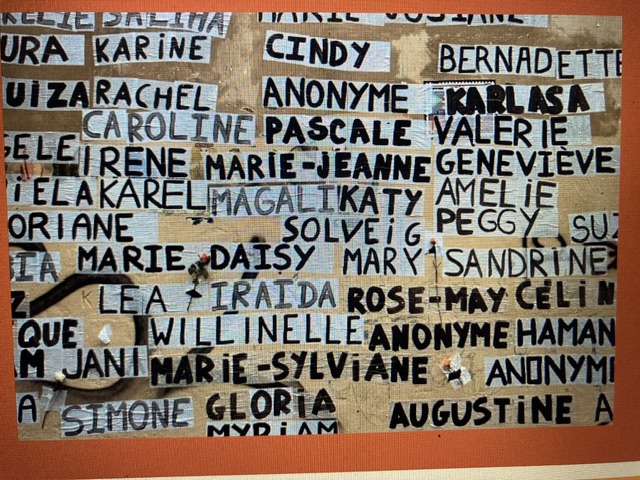 SALIHA MARIE JOSIANE
URA KARINE CINDY BERNADETTE
UIZA RACHEL ANONYME KARLASA
CAROLINE PASCALE VALERIE
GELE IRENE MARIE-JEANNE GENEVIÈVE
IELA KAREL MAGALI KATY AMELIE
ORIANE SOLVEIG PEGGY SUZ
IA MARIE DAISY MARY SANDRINE
Z LEA IRAIDA ROSE-MAY CÉLIN
QUE WILLINELLE ANONYME HAMAN
M JANI MARIE-SYLVIANE ANONYM
A SIMONE GLORIA AUGUSTINE A
MYRIAM